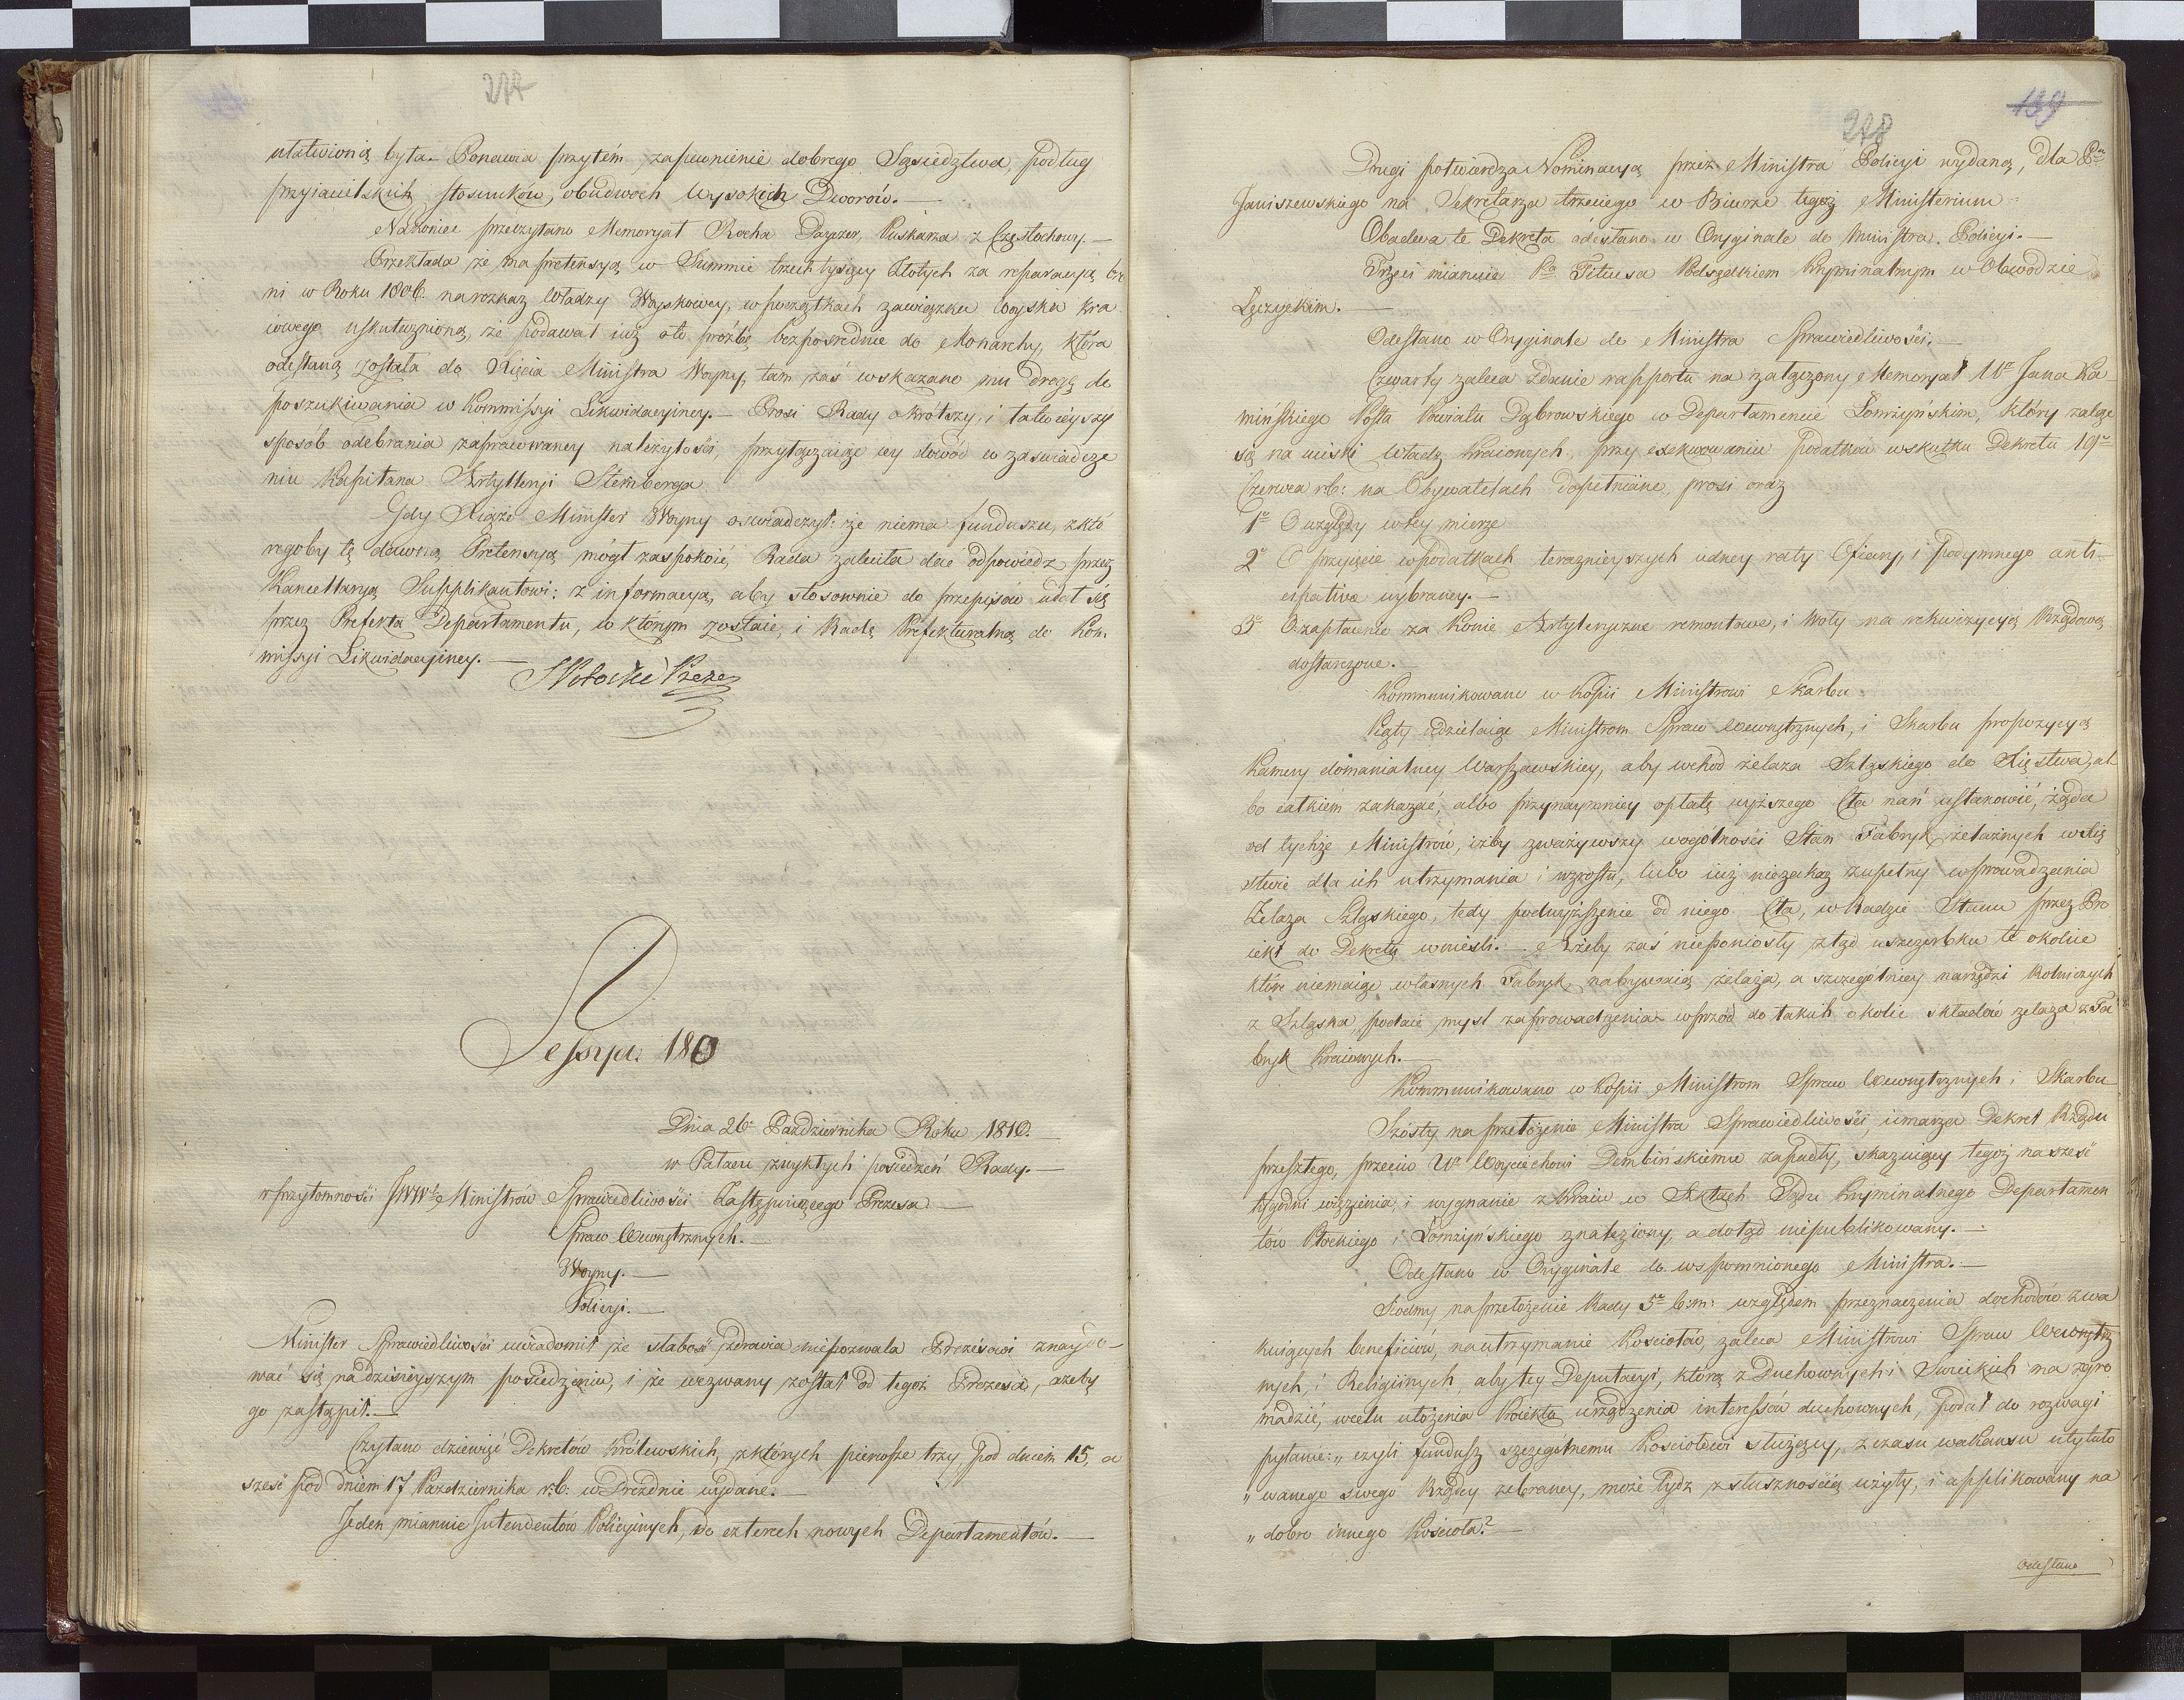 277
ułatwioną była. Ponawia przytém zapewnienie dobrego Sąsiedztwa, podług
przyiacielskich stosunków, obudwoch Wysokich Dworów.—
Nakoniec przeczytano Memoryał Rocha Puskarza z Częstochowy.—
Przekłada że ma pretensyą w Summie trzech tysięcy Złotych za reparacyą bro
ni w Roku 1806. na rozkaz Władzy Woyskowey, w początkach zawiązku woyska kra
iowego uskutecznioną, że podawał iuż o to prózbę bezpośrednie do Monarchy, która
odesłaną została do Xięcia Ministra Woyny, tam zaś wskazano mu drogę do
poszukiwania w Kommissyi Likwidacyiney.— Prosi Rady o krótszy i łatwieyszy
sposób odebrania zapracowaney należytości, przyłączaiąc iey dowód w zaświadcze
niu Kapitana Artylleryi Sternberga.
Gdy Xiąże Minister Woyny oświadczył: że niema funduszu, z któ
regoby tę dawną Pretensyą mógł zaspokoić, Rada zaleciła dać odpowiedz przez
Kancellaryą Supplikantowi: z informacyą, aby stosownie do przepisów udał się
przez Prefekta Departamentu, w którym zostaie, i Radę Prefekturalną do Kom.
missyi Likwidacyiney.—
SPotocki Prezes
Sessya 180
Dnia 26º Października Roku 1810.—
w Pałacu zwykłych posiedzeń Rady.—
w przytomności JWWch Ministrów Sprawiedliwości Zastępuiącego Prezesa—
Spraw Wewnętrznych.—
Woyny.—
Policyi.—
Minister Sprawiedliwości uwiadomił że słabość zdrowia niepozwala Prezesowi znaydo-
wać się na dzisieyszym posiedzeniu, i że wezwany został od tegoż Prezesa, ażeby
go zastąpił.—
Czytano dziewięć Dekretów Królewskich, z których pierwsze trzy pod dniem 15, a
sześć pod dniem 17 Października r.b: w Dreźdnie wydane.—
Jeden mianuie Intendentów Policyinych, do czterech nowych Departamentów.—
139
278
Drugi potwierdza Nominacyą przez Ministra Policyi wydaną, dla Pa
Janiszewskiego na Sekretarza trzeciego w Biurze tegoż Ministerium—
Obadwa te Dekreta odesłano w Oryginale do Ministra Policyi.—
Trzeci mianuie Pa Titusa Podsędkiem Kryminalnym w Obwodzie
Łęczyckim.—
Odesłano w Oryginale do Ministra Sprawiedliwości.—
Czwarty zaleca zdanie rapportu na załączony Memoryał Ur Jana Ka-
mińskiego Posła Powiatu Dąbrowskiego w Departamencie Łomżyńskim, który żaląc
się na uciski Władz Kraiowych, przy exekwowaniu podatków w skutku Dekretu 19º
Czerwca r.b: na Obywatelach dopełniane, prosi oraz
1º O względy w tey mierze
2º O przyięcie w podatkach teraznieyszych iedney raty Ofiary, i podymnego anti-
cipative wybraney.—
3º O zapłacenie za Konie Artyleryczne remontowe, i Woły na rekwizycyą Rządową
dostarczone.—
Kommunikowano w Kopii Ministrowi Skarbu—
Piąty udzielaiąc Ministrom Spraw Wewnętrznych, i Skarbu propozycyą
Kamery domanialney Warszawskiey, aby wchód żelaza Szląskiego do Xięstwa, al
bo całkiem zakazać, albo przynaymniey opłatę wyższego Cła nań ustanowić, żąda
od tychże Ministrów, iżby zważywszy wogólności Stan Fabryk żelaznych w Xię
stwie dla ich utrzymania i wzrostu, lubo iuż niezakaz zupełny wprowadzania
Żelaza Szląskiego, tedy podwyższenie od niego Cła, w Radzie Stanu przez Pro
iekt do Dekretu wnieśli.— Ażeby zaś nieponiosły ztąd uszczerbku te okolice
które niemaiąc własnych Fabryk nabywaią żelaza, a szczególniey narzędzi Rolniczych
z Szląska, podaie myśl zaprowadzenia wprzód do takich okolic składów żelaza z Fa
bryk Kraiowych.—
Kommunikowano w Kopii Ministrom Spraw Wewnętrznych i Skarbu
Szósty na przełożenie Ministra Sprawiedliwości, umarza Dekret Rządu
przeszłego, przeciw Ur Woyciechowi Dembińskiemu zapadły, skazuiący tegoż na sześć
tygodni więzienia, i wygnanie z Kraiu w Aktach Sądu Kryminalnego Departamen
tów Płockiego i Łomżyńskiego znaleziony, a dotąd niepublikowany.—
Odesłano w Oryginale do wspomnionego Ministra.—
Siódmy na przełożenie Rady 5º b:m: względem przeznaczenia dochodów z wa
kuiących beneficiów, na utrzymanie Kosciołów, zaleca Ministrowi Spraw Wewnętrz
nych, i Religiinych, aby tey Deputacyi, którą z Duchownych i Swieckich ma zgro
madzić, wcelu ułożenia Proiektu urządzenia interessów duchownych, podał do rozwagi
pytanie: „czyli fundusz szczególnemu Kościołowi służący, z czasu wakansu utytuło
„wanego swego Rządcy zebraney, może bydz z słusznością użyty, i applikowany na
„dobro innego Kościoła?—
Odesłano